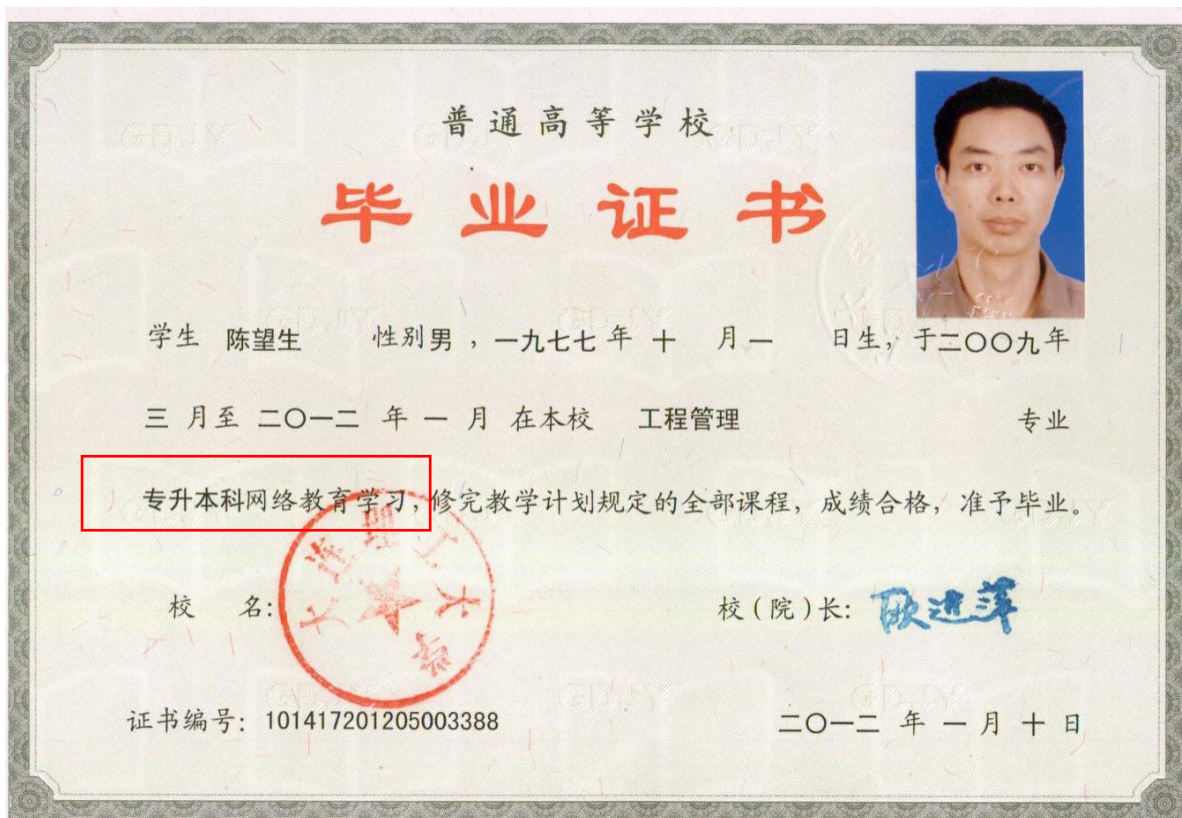 普通高等学校
毕业证书
学生 陈望生 性别男，一九七七年 十 月一 日生，于二〇〇九年
三 月至 二〇一二 年 一 月 在本校 工程管理 专业
专升本科网络教育学习，修完教学计划规定的全部课程，成绩合格，准予毕业。
校 名：
大连理工大学
校(院)长：欧进萍
证书编号：101417201205003388
二〇一二 年 一 月 十 日
GDJY GDJY GDJY
GDJY GDJY
GDJY GDJY GDJY